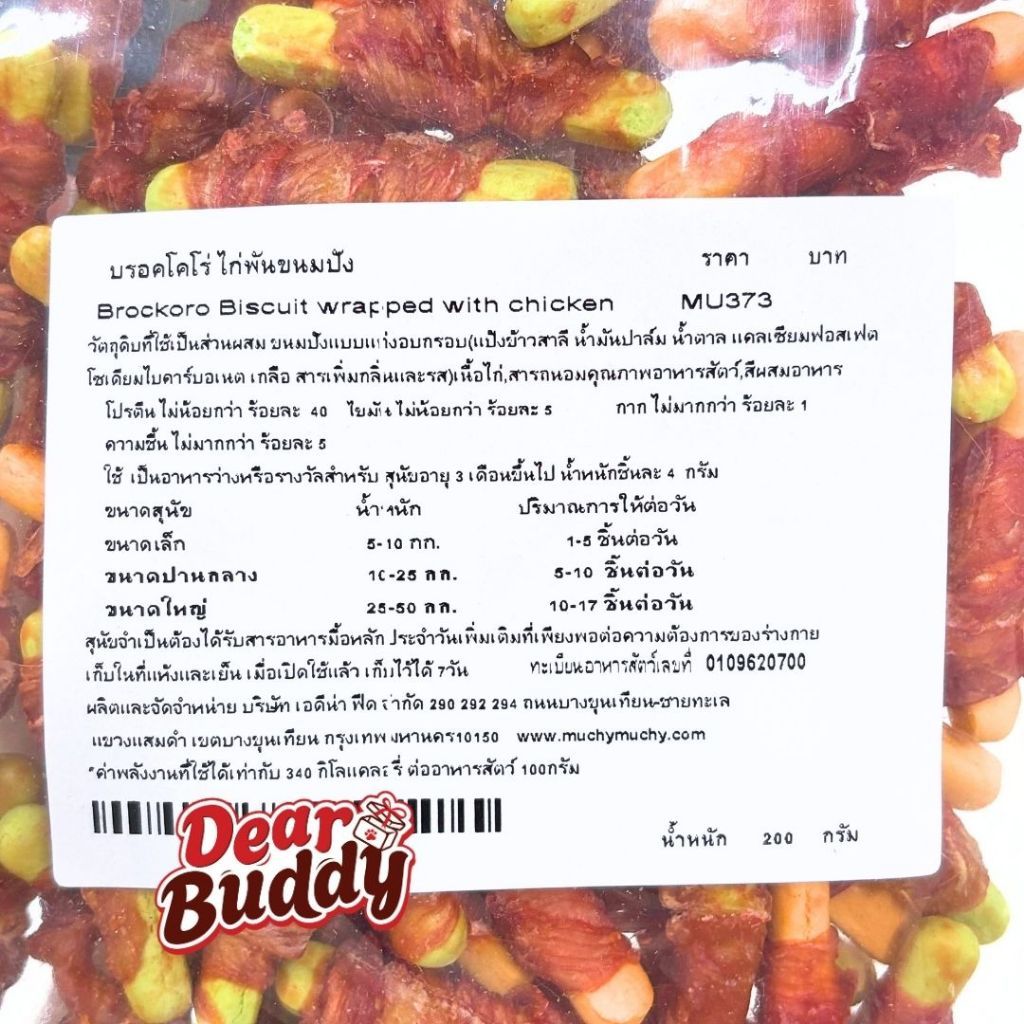 บรอคโคโร่ ไก่พันขนมปัง ราคา บาท
Brockoro Biscuit wrapped with chicken MU373
วัตถุดิบที่ใช้เป็นส่วนผสม ขนมปังแบบแท่งอบกรอบ(แป้งข้าวสาลี น้ำมันปาล์ม น้ำตาล แคลเซียมฟอสเฟต
โซเดียมไบคาร์บอเนต เกลือ สารเพิ่มกลิ่นและรส)เนื้อไก่,สารถนอมคุณภาพอาหารสัตว์,สีผสมอาหาร
โปรตีน ไม่น้อยกว่า ร้อยละ 40 ไขมัน ไม่น้อยกว่า ร้อยละ 5 กาก ไม่มากกว่า ร้อยละ 1
ความชื้น ไม่มากกว่า ร้อยละ 5
ใช้ เป็นอาหารว่างหรือรางวัลสำหรับ สุนัขอายุ 3 เดือนขึ้นไป น้ำหนักชิ้นละ 4 กรัม
ขนาดสุนัข น้ำหนัก ปริมาณการให้ต่อวัน
ขนาดเล็ก 5-10 กก. 1-5 ชิ้นต่อวัน
ขนาดปานกลาง 10-25 กก. 5-10 ชิ้นต่อวัน
ขนาดใหญ่ 25-50 กก. 10-17 ชิ้นต่อวัน
สุนัขจำเป็นต้องได้รับสารอาหารมื้อหลัก ประจำวันเพิ่มเติมที่เพียงพอต่อความต้องการของร่างกาย
เก็บในที่แห้งและเย็น เมื่อเปิดใช้แล้ว เก็บไว้ได้ 7วัน ทะเบียนอาหารสัตว์เลขที่ 0109620700
ผลิตและจัดจำหน่าย บริษัท เอดีน่า ฟีด จำกัด 290 292 294 ถนนบางขุนเทียน-ชายทะเล
แขวงแสมดำ เขตบางขุนเทียน กรุงเทพมหานคร10150 www.muchymuchy.com
*ค่าพลังงานที่ใช้ได้เท่ากับ 340 กิโลแคลอรี่ ต่ออาหารสัตว์ 100กรัม
น้ำหนัก 200 กรัม
Dear
Buddy